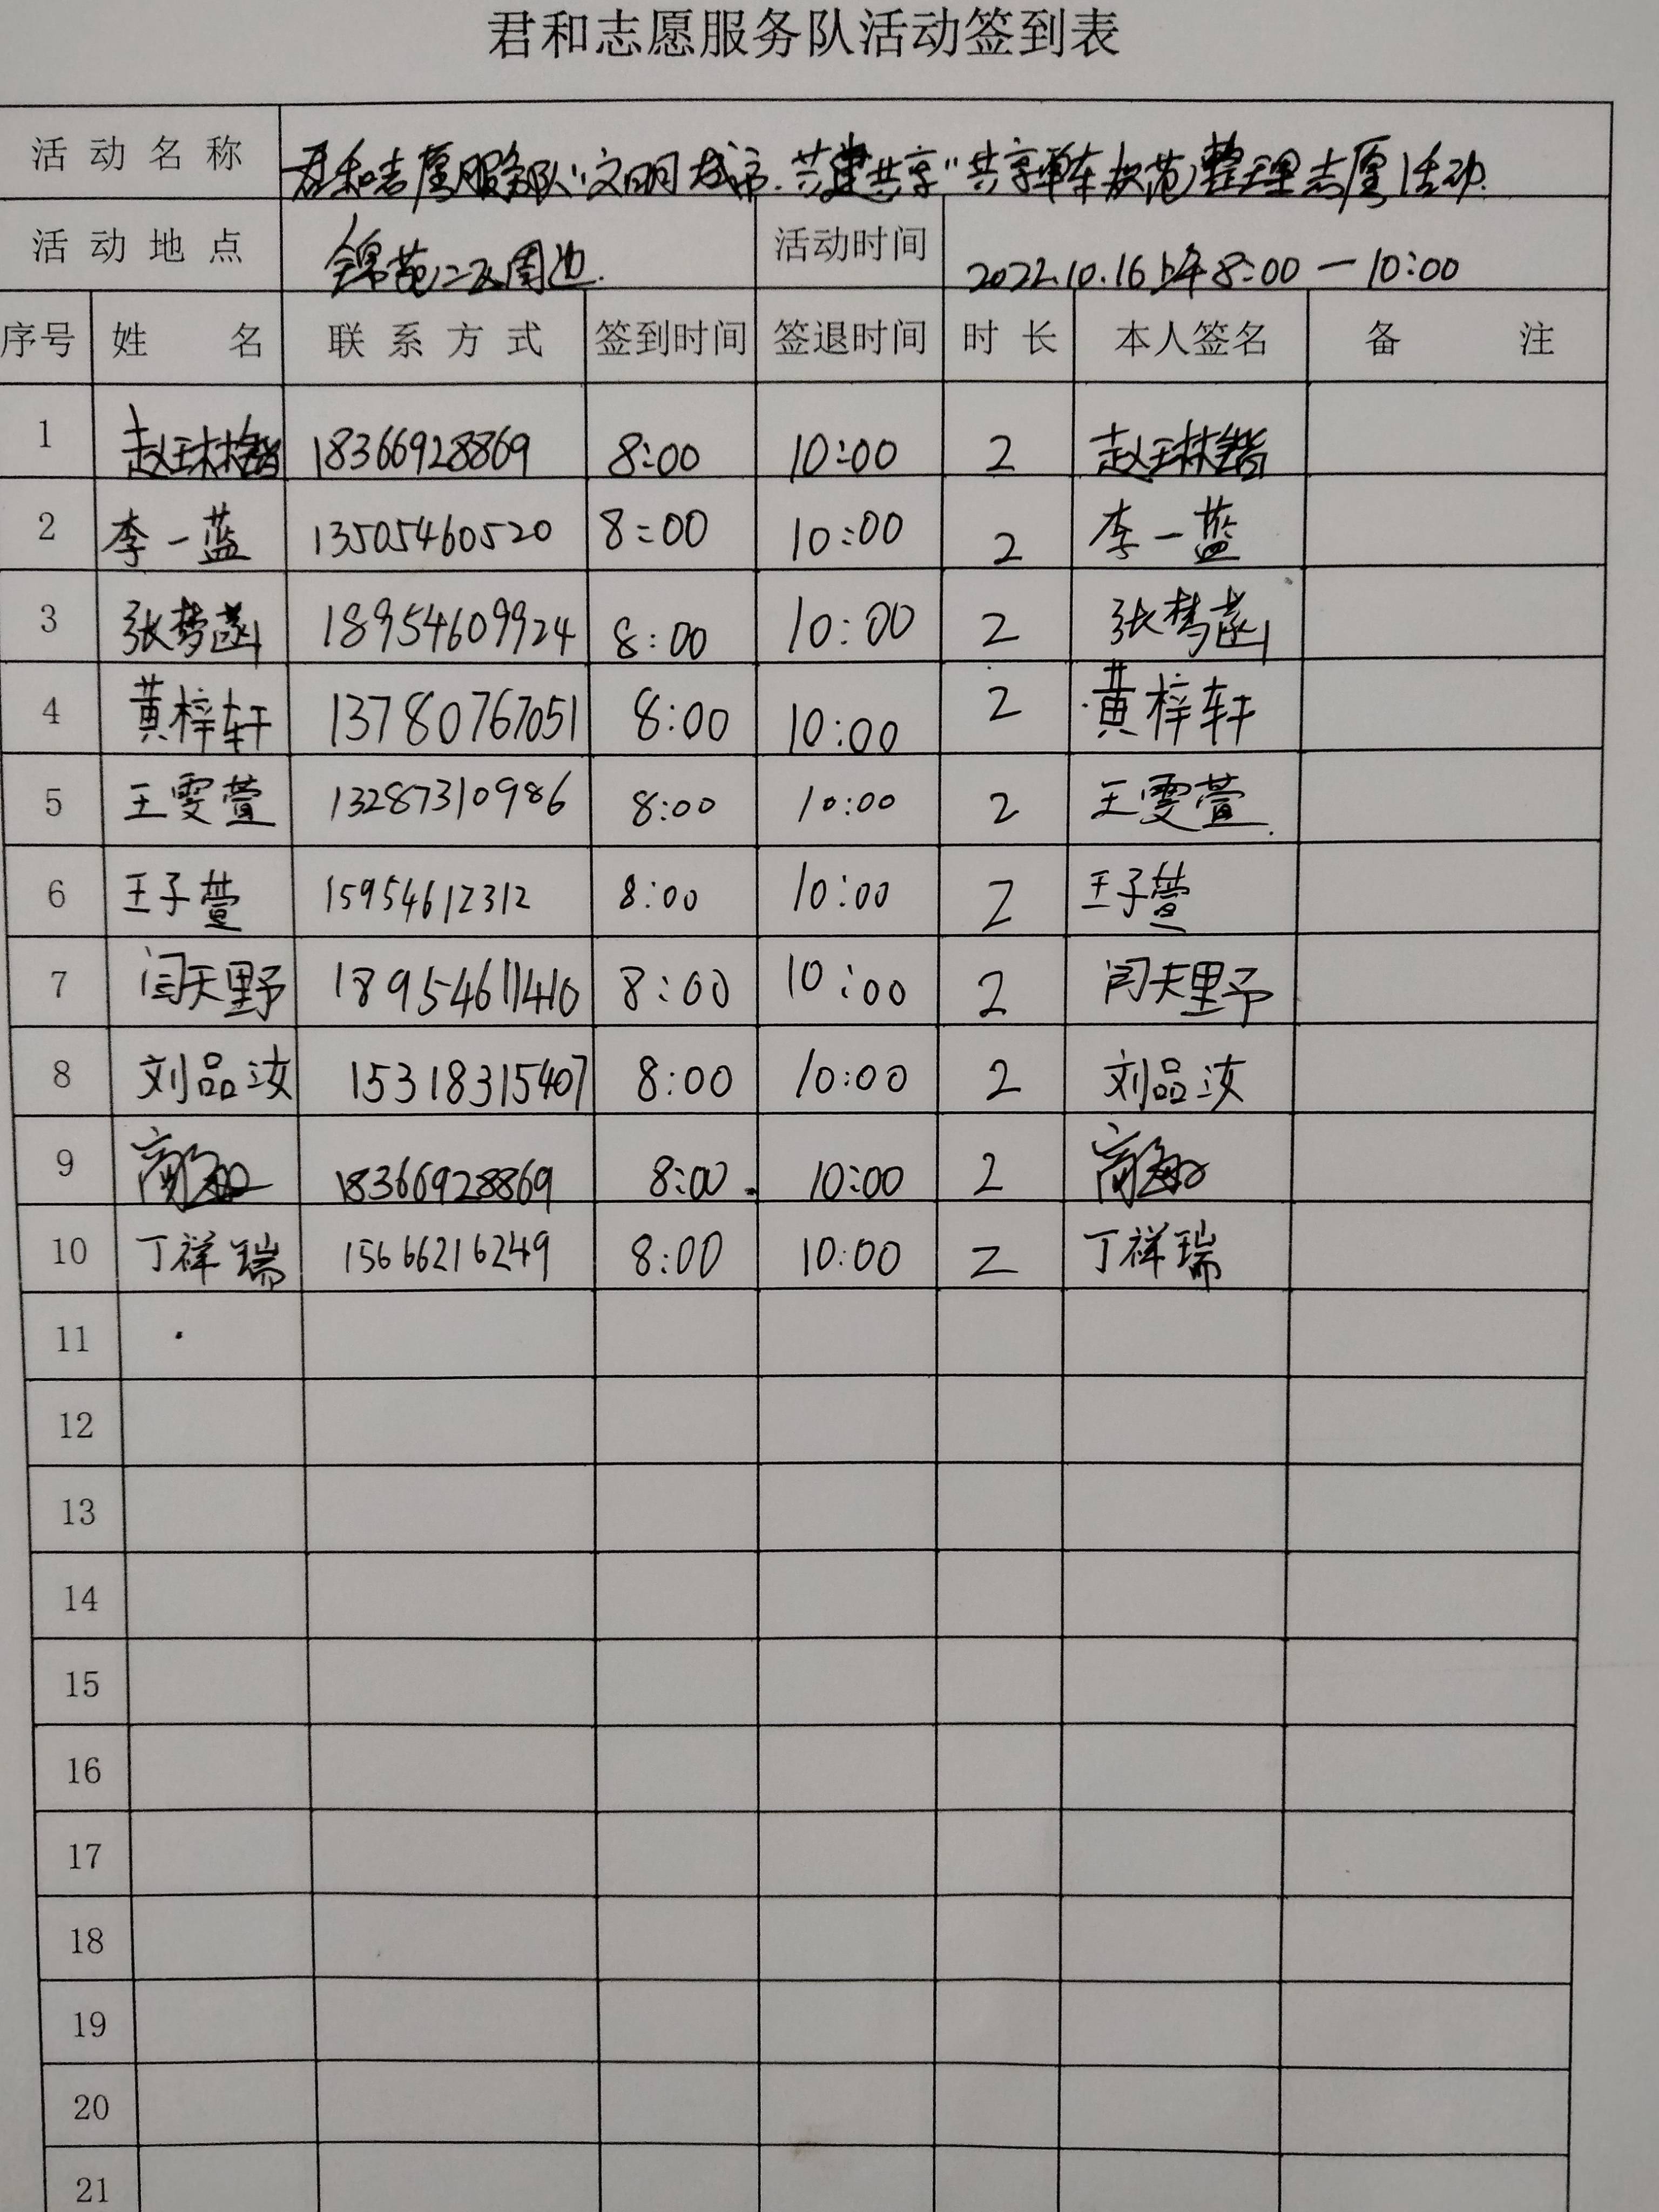 君和志愿服务队活动签到表
活动名称 君和志愿服务队"文明城市.共建共享"共享单车规范整理志愿活动.
活动地点 锦苑二区周边. 活动时间 2022.10.16上午8:00—10:00
序号 姓名 联系方式 签到时间 签退时间 时长 本人签名 备注
1 赵琳锴 18366928869 8:00 10:00 2 赵琳锴
2 李一蓝 13505460520 8:00 10:00 2 李一蓝
3 张梦菡 18954609924 8:00 10:00 2 张梦菡
4 黄梓轩 13780767051 8:00 10:00 2 黄梓轩
5 王雯萱 13287310986 8:00 10:00 2 王雯萱
6 王子萱 15954612312 8:00 10:00 2 王子萱
7 闫天野 18954611410 8:00 10:00 2 闫天野
8 刘品汝 15318315407 8:00 10:00 2 刘品汝
9 18366928869 8:00 10:00 2
10 丁祥瑞 15666216249 8:00 10:00 2 丁祥瑞
11
12
13
14
15
16
17
18
19
20
21